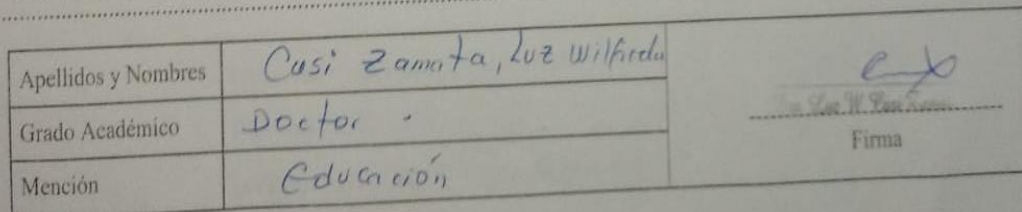 Apellidos y Nombres Cusi Zamata, Luz Wilfreda
Grado Académico Doctor .
Firma
Mención Educación